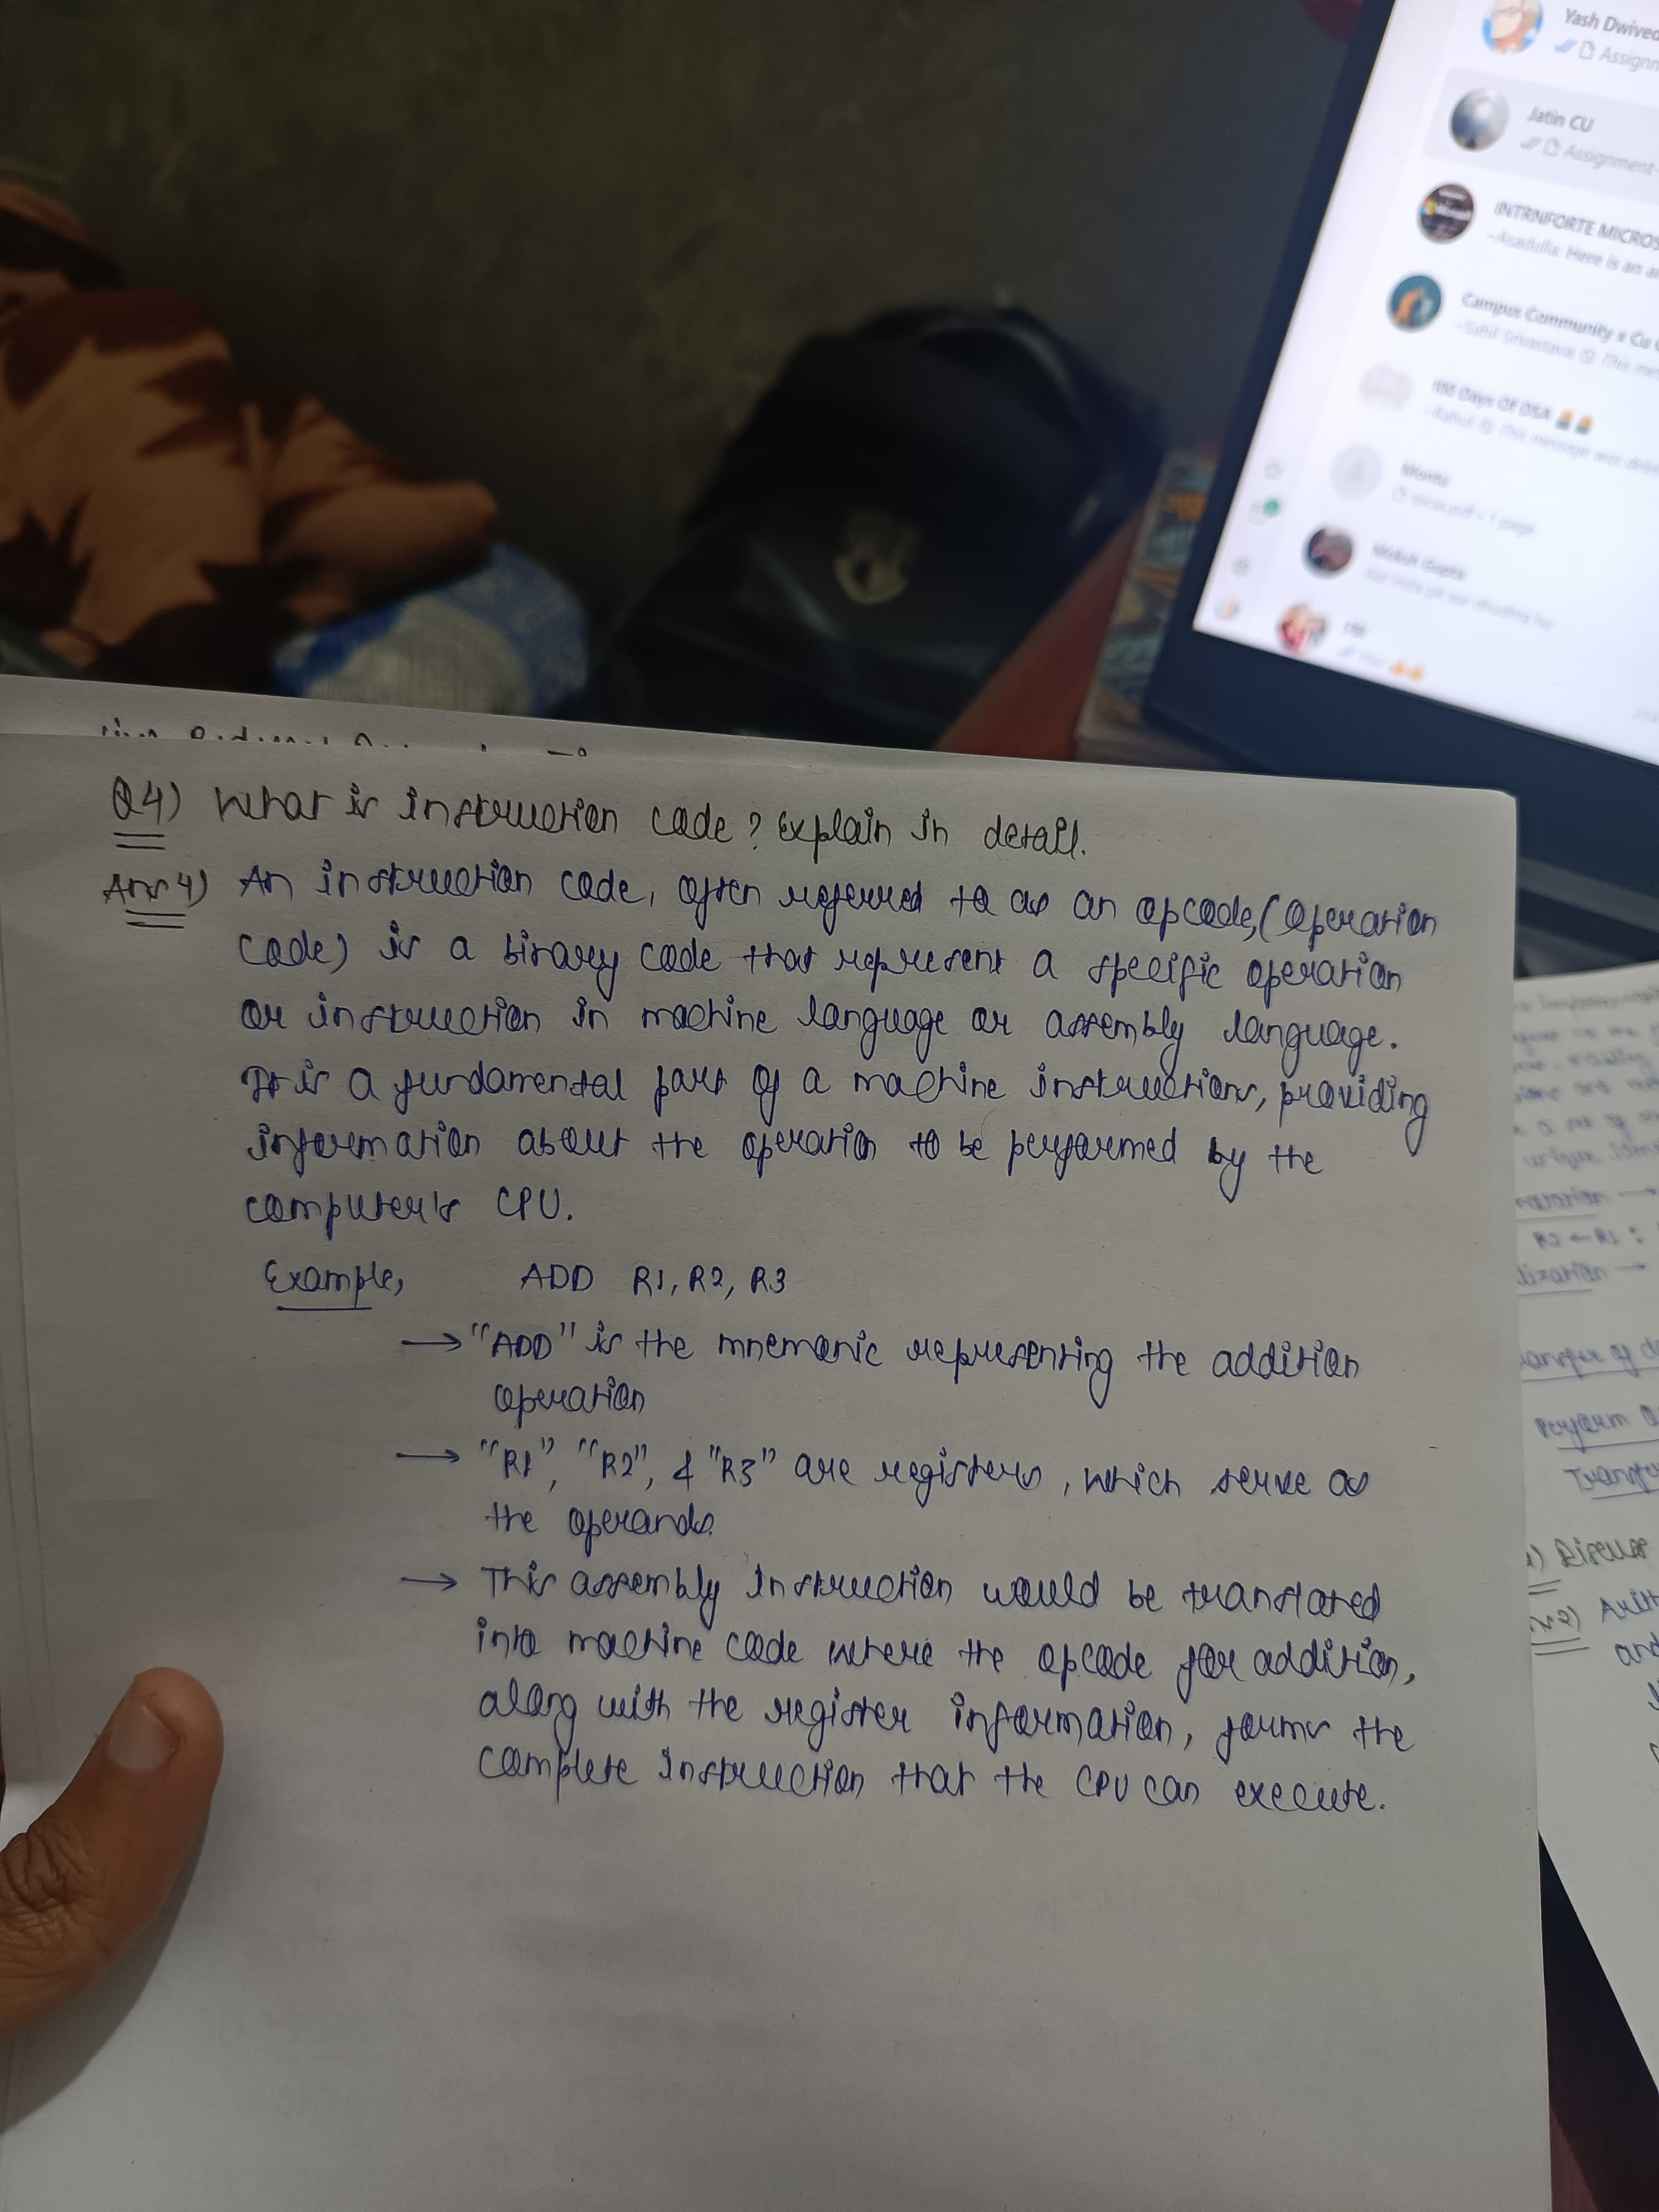 Yash Dwived
Assignm
Jatin CU
Assignment-
INTRNFORTE MICROS
~Asadulla: Here is an a
Campus Community x Cu
~Sahil Srivastava: This mes
100 Days OF DSA
~Rahul: This message was delet
1 page
Gupta
Q4) What is instruction code? Explain in detail.
Ans4) An instruction code, often referred to as an opcode,(Operation
Code) is a binary code that represent a specific operation
or instruction in machine language or assembly language.
It is a fundamental part of a machine instructions, providing
information about the operation to be performed by the
computer's CPU.
Example, ADD R1, R2, R3
→ "ADD" is the mnemonic representing the addition
operation
→ "R1", "R2", & "R3" are registers, which serve as
the operands.
→ This assembly instruction would be translated
into machine code where the opcode for addition,
along with the register information, forms the
complete instruction that the CPU can execute.
R2 ← R1 :
lization →
ansfer of d
Perform
Transfe
) Discuss
Arit
and